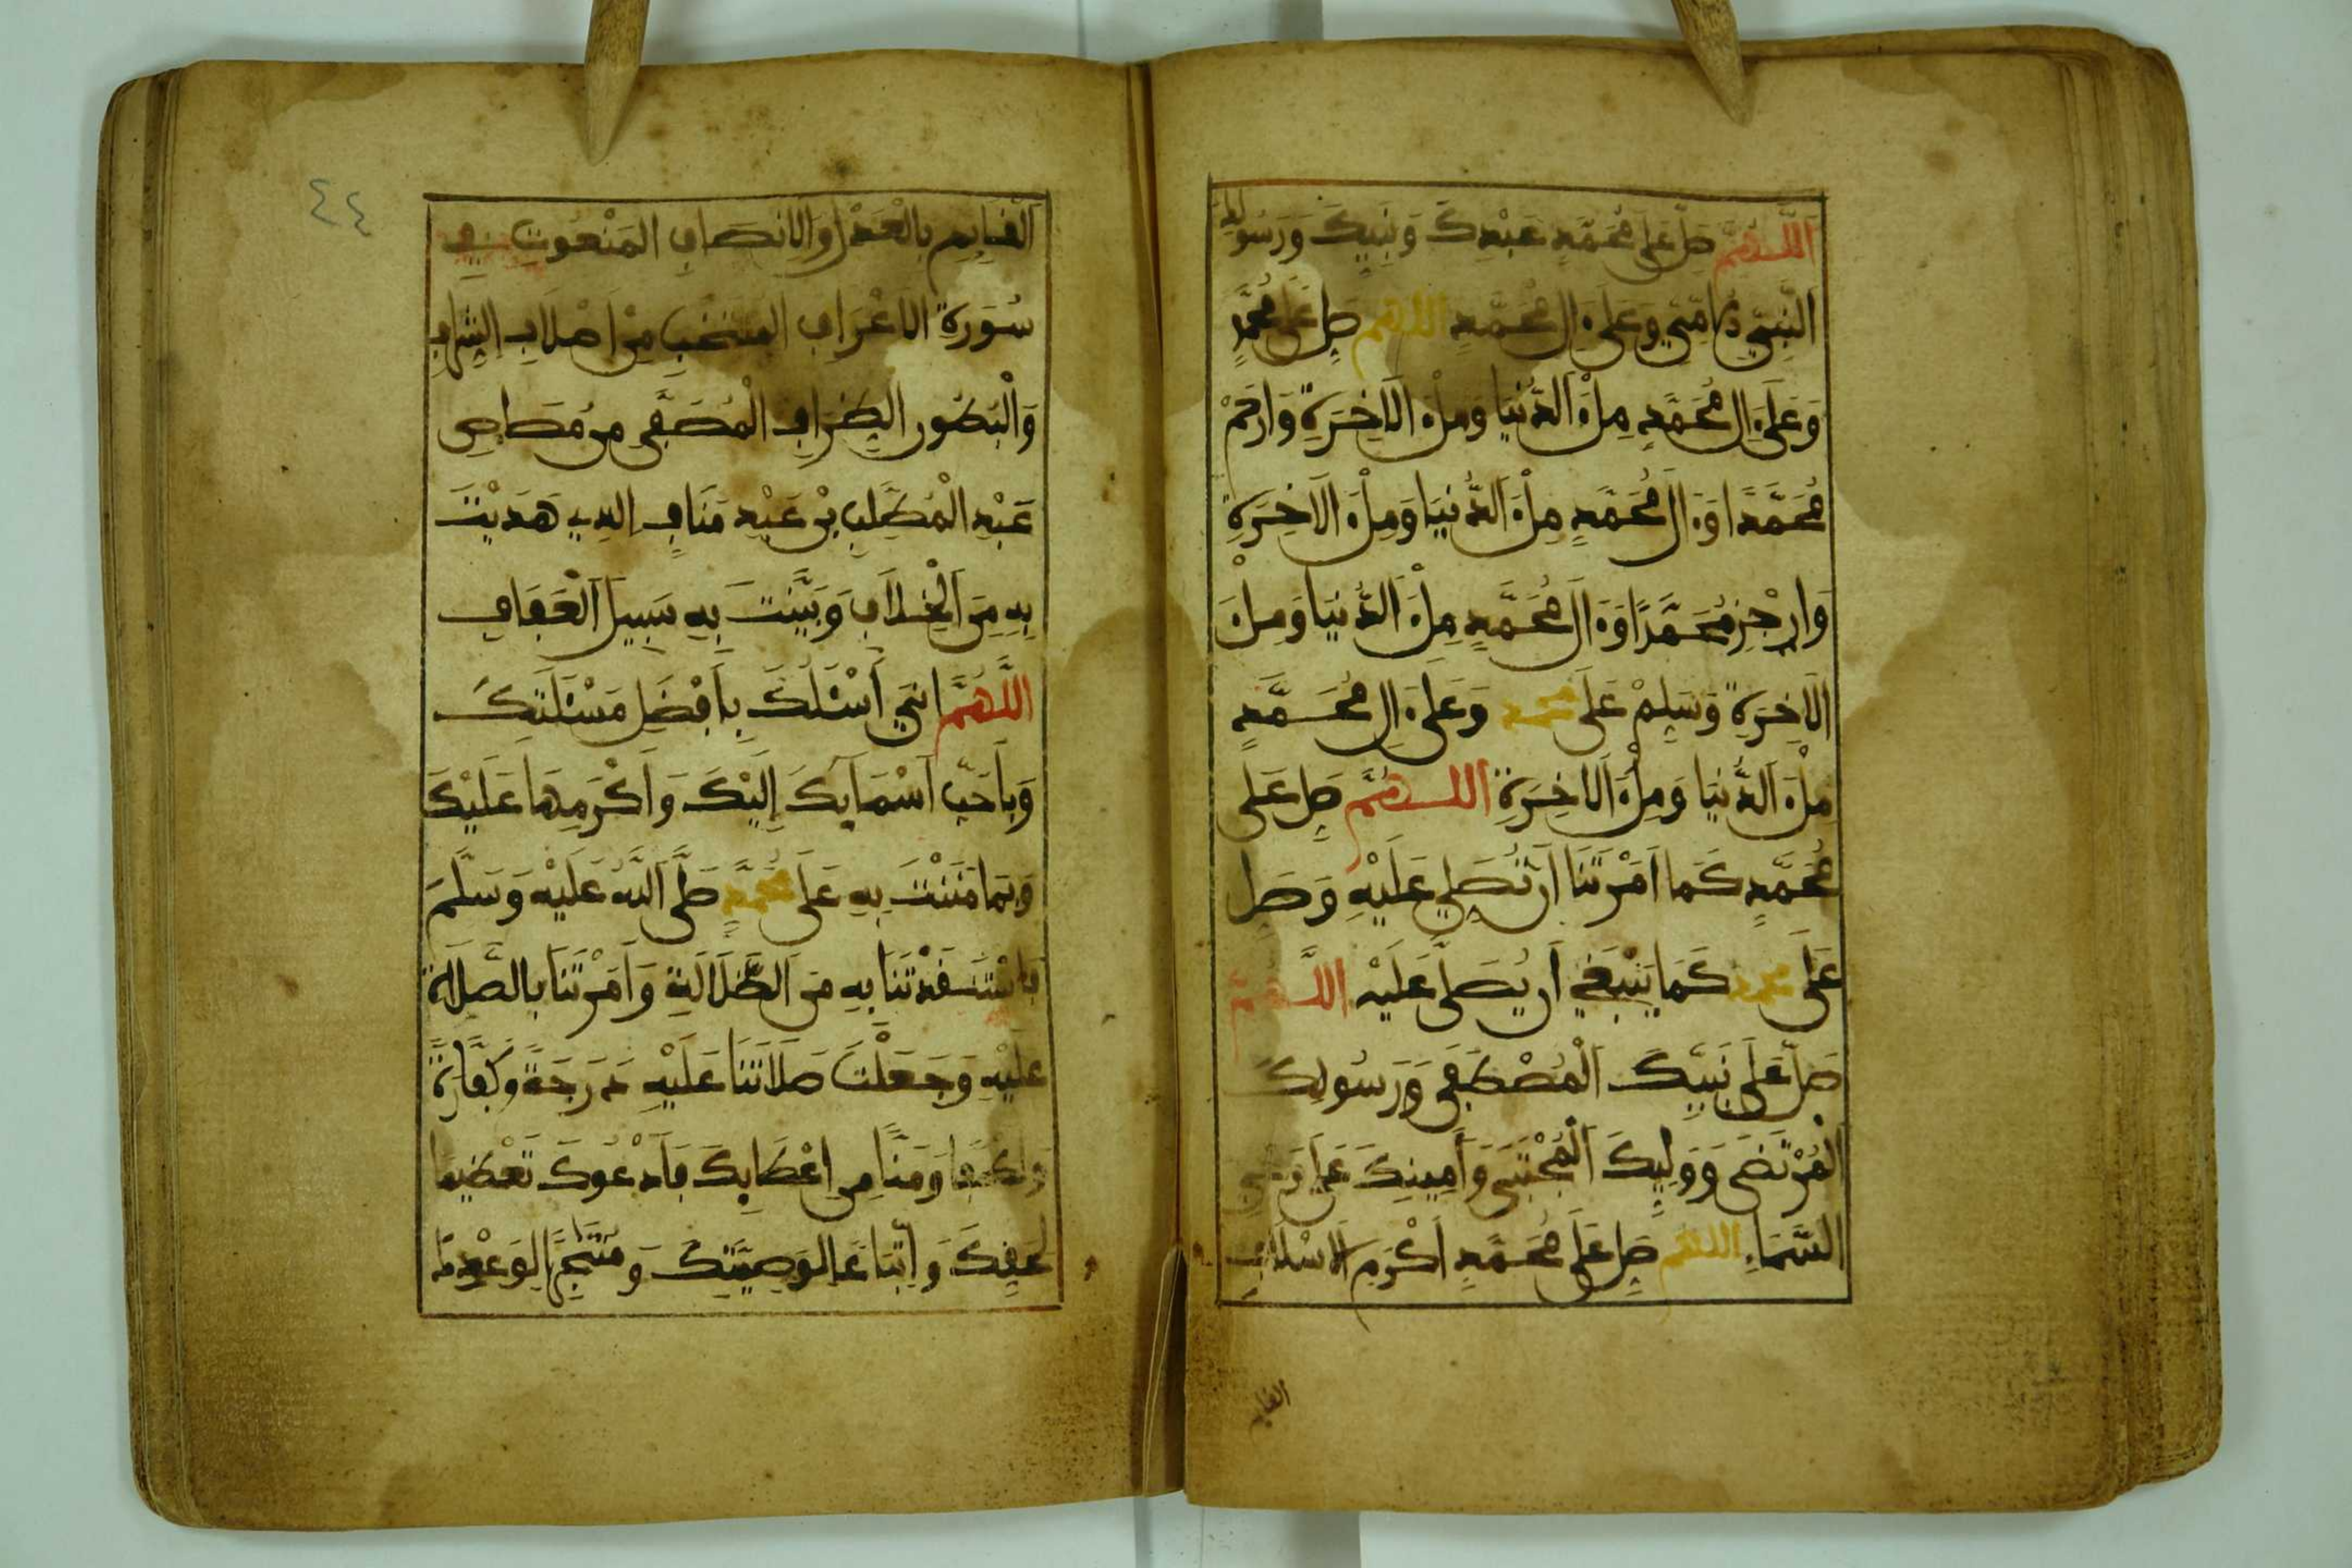 اَللَّهُمَّ صَلِّ عَلَى مُحَمَّدٍ عَبْدِكَ وَنَبِيِّكَ وَرَسُولِكَ
اَلنَّبِيِّ الْأُمِّيِّ وَعَلَى ءَالِ مُحَمَّدٍ اللَّهُمَّ صَلِّ عَلَى مُحَمَّدٍ
وَعَلَى ءَالِ مُحَمَّدٍ مِلْءَ الدُّنْيَا وَمِلْءَ الْآخِرَةِ وَارْحَمْ
مُحَمَّدًا وَءَالَ مُحَمَّدٍ مِلْءَ الدُّنْيَا وَمِلْءَ الْآخِرَةِ
وَاجْزِ مُحَمَّدًا وَءَالَ مُحَمَّدٍ مِلْءَ الدُّنْيَا وَمِلْءَ
الْآخِرَةِ وَسَلِّمْ عَلَى مُحَمَّدٍ وَعَلَى ءَالِ مُحَمَّدٍ
مِلْءَ الدُّنْيَا وَمِلْءَ الْآخِرَةِ اللَّهُمَّ صَلِّ عَلَى
مُحَمَّدٍ كَمَا أَمَرْتَنَا أَنْ نُصَلِّيَ عَلَيْهِ وَصَلِّ
عَلَى مُحَمَّدٍ كَمَا يَنْبَغِي أَنْ يُصَلَّى عَلَيْهِ اللَّهُمَّ
صَلِّ عَلَى نَبِيِّكَ الْمُصْطَفَى وَرَسُولِكَ
الْمُرْتَضَى وَوَلِيِّكَ الْمُجْتَبَى وَأَمِينِكَ عَلَى وَحْيِ
السَّمَاءِ اللَّهُمَّ صَلِّ عَلَى مُحَمَّدٍ أَكْرَمِ الْأَسْلَافِ
القايم
٤٤
الْقَايِمِ بِالْعَدْلِ وَالْإِنْصَافِ الْمَنْعُوتِ فِي
سُورَةِ الْأَعْرَافِ الْمُنْتَخَبِ مِنْ أَصْلَابِ الشِّرَافِ
وَالْبُطُونِ الظِّرَافِ الْمُصَفَّى مِنْ مُصَاصِ
عَبْدِ الْمُطَّلِبِ بْنِ عَبْدِ مَنَافٍ الَّذِي هَدَيْتَ
بِهِ مِنَ الْخِلَافِ وَبَيَّنْتَ بِهِ سَبِيلَ الْعَفَافِ
اللَّهُمَّ إِنِّي أَسْئَلُكَ بِأَفْضَلِ مَسْئَلَتِكَ
وَبِأَحَبِّ أَسْمَايِكَ إِلَيْكَ وَأَكْرَمِهَا عَلَيْكَ
وَبِمَا مَنَنْتَ بِهِ عَلَى مُحَمَّدٍ صَلَّى اللَّهُ عَلَيْهِ وَسَلَّمَ
فَاسْتَنْقَذْتَنَا بِهِ مِنَ الضَّلَالَةِ وَأَمَرْتَنَا بِالصَّلَاةِ
عَلَيْهِ وَجَعَلْتَ صَلَاتَنَا عَلَيْهِ دَرَجَةً وَكَفَّارَةً
وَلُطْفًا وَمَنًّا مِنْ إِعْطَايِكَ فَأَدْعُوكَ تَعْظِيمًا
لِحَقِّكَ وَاتِّبَاعًا لِوَصِيَّتِكَ وَمُنْتَجِزًا لِوَعْدِكَ